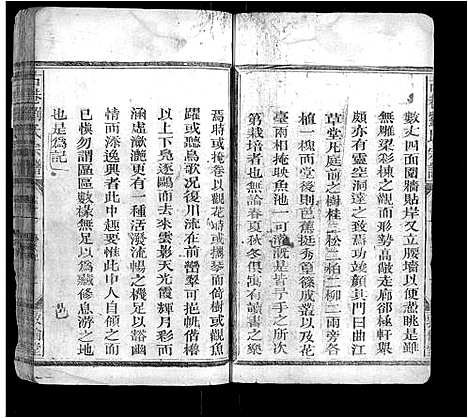 數丈四面圍牆貼岸又立腰墻以便蓋眺是雖
無雕梁彩棟之觀而形勢高敞走廊邻極軒舉
頗亦有靈空洞達之致爰成功後題其門曰曲江
草堂凡庭前之樹桂三松二柏二柳二兩旁各
植一槐而堂後則芭蕉挺秀草篠成叢以及花
臺雨相掩映魚池一可灌溉是皆予手之所次
第栽培者也無論春夏秋冬俱寓有讀書之樂
焉時或掩卷以觀花時或攜琴而倚樹或觀魚
躍或聽鳥歌況復川流在前巒翠可挹帆檣櫓
以上下鳧逐鷗而去來雲影天光霞輝月彩而
涵虛瀲灎更有一種活潑流暢之機足以謟幽
情而添逸興者此中趣要惟此中人自領之而
已慎勿謂區區數椽無足以為藏修息游之地
也是為記
劉氏宗譜